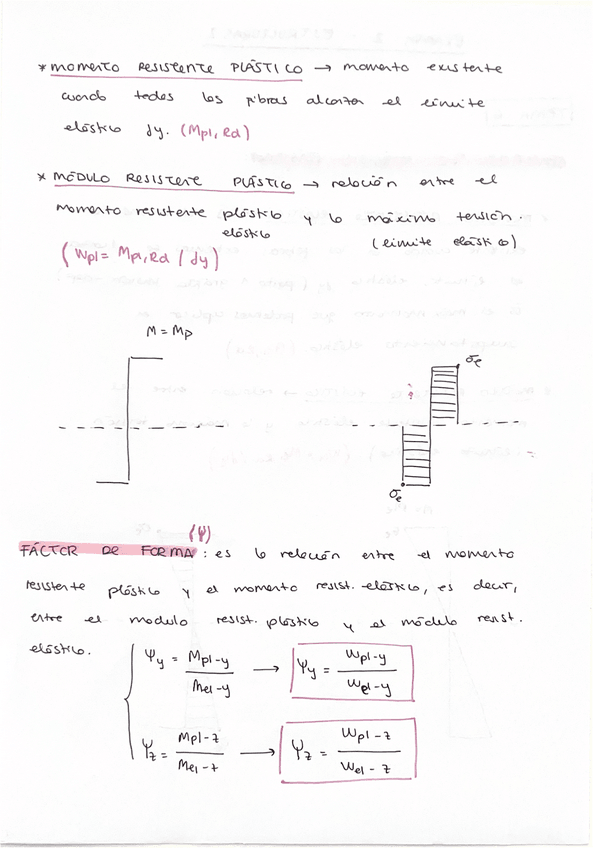 * MOMENTO RESISTENTE PLÁSTICO → momento existente
cuando todas las fibras alcanzan el límite
elástico fy. (Mpl,Rd)
* MÓDULO RESISTENTE PLÁSTICO → relación entre el
momento resistente plástico y la máxima tensión.
elástico (límite elástico)
(Wpl = Mpl,Rd / fy)
M = Mp
σe
σe
(Ψ)
FÁCTOR DE FORMA: es la relación entre el momento
resistente plástico y el momento resist. elástico, es decir,
entre el modulo resist. plástico y el módulo resist.
elástico.
Ψy = Mpl-y / Mel-y → Ψy = Wpl-y / Wel-y
Ψz = Mpl-z / Mel-z → Ψz = Wpl-z / Wel-z